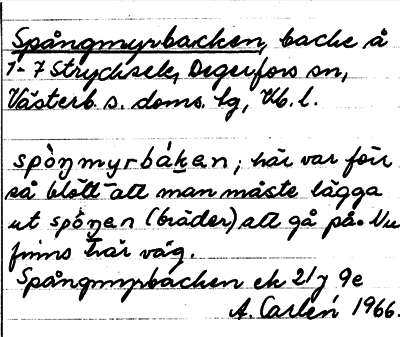 Spångmyrbacken, backe å
1-7 Strycksele, Degerfors sn,
Västerb. s. doms. lg, Vb. l.
spòŋmyrbáken; här var förr
så blött att man måste lägga
ut spòŋen (bräder) att gå på. Nu
finns här väg.
Spångmyrbacken ek 21 j 9e
A. Carlén 1966.